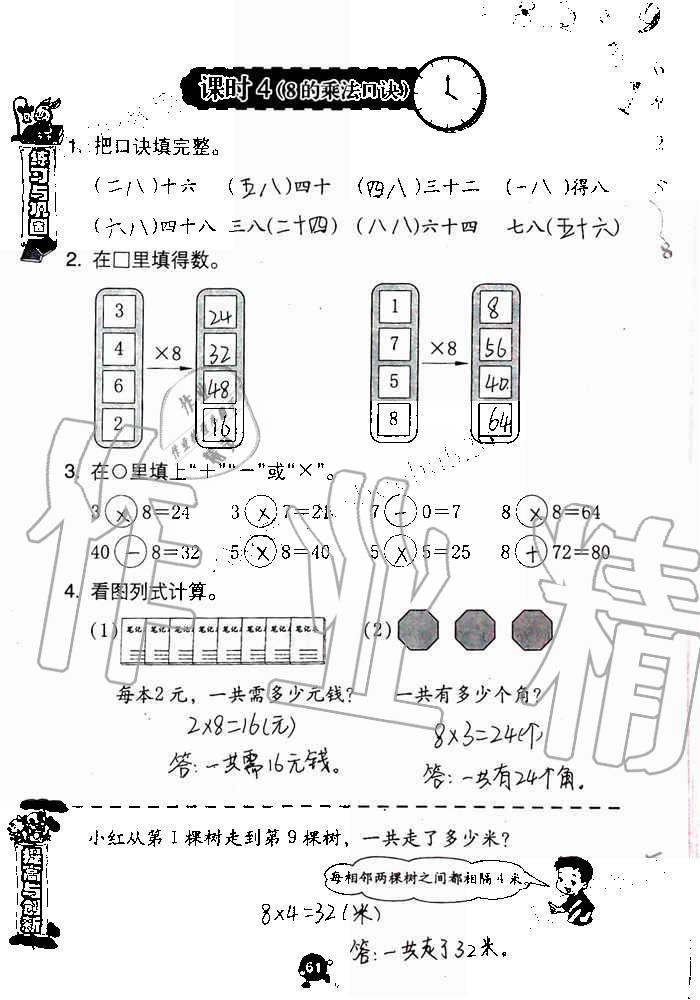 课时4(8的乘法口诀)
练习与巩固
1. 把口诀填完整。
(二八)十六 (五八)四十 (四八)三十二 (一八)得八
(六八)四十八 三八(二十四) (八八)六十四 七八(五十六)
2. 在□里填得数。
3 24 1 8
4 32 7 56
×8 ×8
6 48 5 40
2 16 8 64
3. 在○里填上“+”“-”或“×”。
3×8=24 3×7=21 7-0=7 8×8=64
40-8=32 5×8=40 5×5=25 8+72=80
4. 看图列式计算。
(1) 笔记 笔记 笔记 笔记 笔记 笔记 笔记 笔记 (2)
每本2元，一共需多少元钱？ 一共有多少个角？
2×8=16(元) 8×3=24(个)
答:一共需16元钱。 答:一共有24个角。
提高与创新
小红从第1棵树走到第9棵树，一共走了多少米？
每相邻两棵树之间都相隔4米
8×4=32(米)
答:一共走了32米。
61
作业精